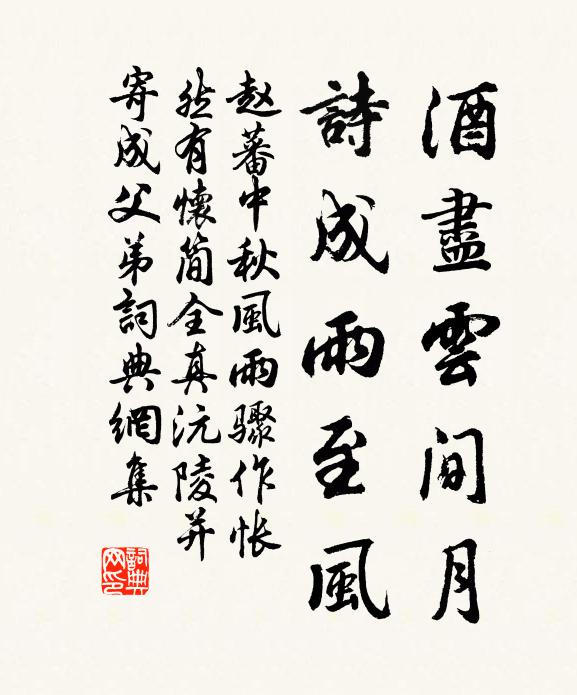 酒盡雲間月
詩成雨至風
赵蕃中秋風雨驟作怅
然有懷簡全真沅陵并
寄成父弟詞典網集
詞典网印